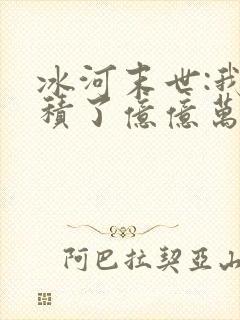 冰河末世:我
積了億億萬
阿巴拉契亞山